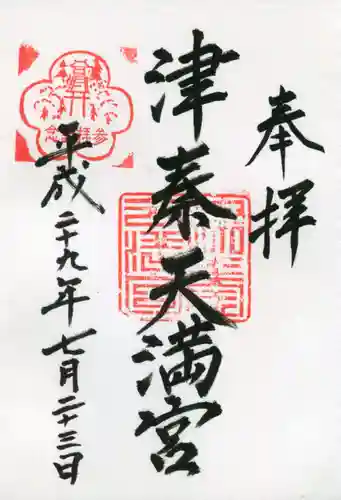 奉拝
津秦天満宮
平成二十九年七月二十三日